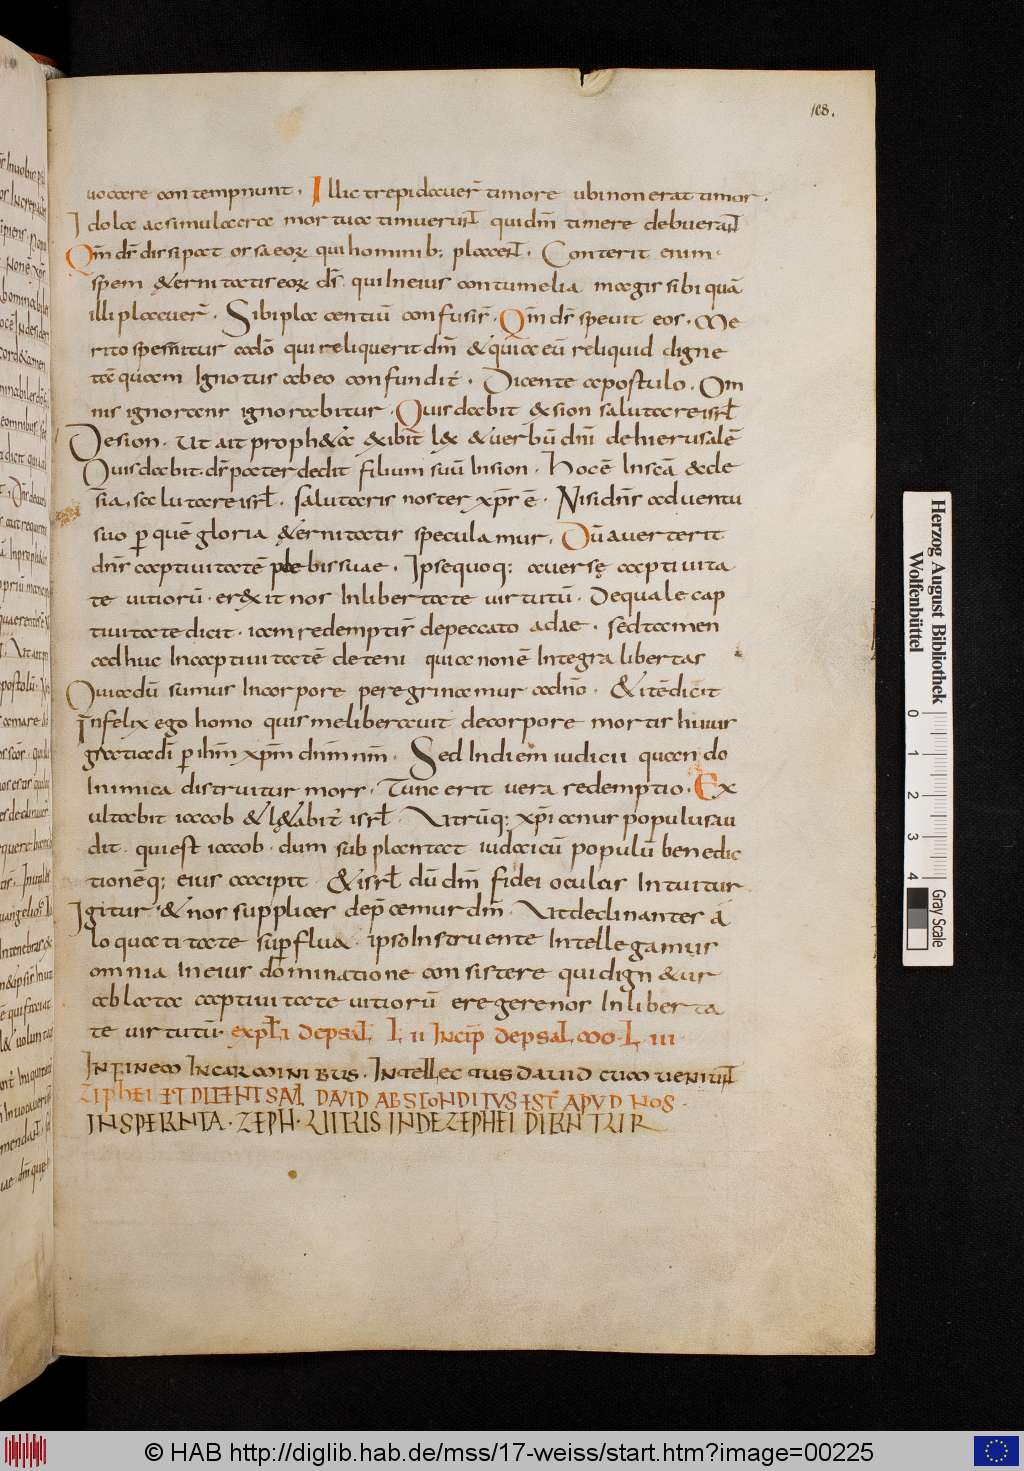 108.
uocare contempnunt. Illic trepidauer̄ timore ubi non erat timor.
Idola ac simulacra mortua timuerun̄t quid̄m timere debueran̄t
Qm̄ d̄s dissipat ossa eoꝝ qui hominib: placen̄t. Conterit enim
spem &ernitatis eoꝝ d̄s. qui In eius contumelia magis sibi quā
illi placuer̄. Sibi placentiū confusis̄. Qm̄ d̄s spreuit eos. Me
rito spernitur adō qui reliquerit dm̄ & quia eū reliquid digne
tāquam Ignotus abeo confundit̄. Dicente apostulo. Om
nis ignorans ignorabitur. Quis dabit & sion salutare isrł
De sion. Ut ait proph&a &ibit̄ lex & uerbū dnī de hierusalē
Quis dabit. d̄s pater dedit filium suū In sion. Hoc ē In scā &cle
s̄ia, salutare isrł. Salutaris noster xp̄s ē. Nisi dn̄s aduentu
suo p quē gloria &ernitatis speculamur. Dū auerterit
dn̄s captiuitatē plebis suae. Ipse quoq: auersę captiuita
te uitiorū. erexit nos In libertate uirtutū. De quale cap
tiuitate dicit. iam redemptis̄ de peccato adae. sed tamen
adhuc In captiuitatē deteni quia non ē Integra libertas
Qui adū sumus In corpore peregrinamur adn̄o. & itē dicit
Infelix ego homo quis me liberauit de corpore mortis huius
gratia dī p ihm̄ xpm̄ dnm̄ nm̄. Sed In diem iudicii quando
Inimica distruitur mors. Tunc erit uera redemptio. Ex
ultabit iacob & lętabit̄ isrł. Utrūq: xp̄ianus populus au
dit. qui est iacob. dum subplantat iudaicū populū benedic
tionēq: eius accipit. & isrł dū dm̄ fidei oculis Intuitur
Igitur & nos supplices dep̄camur dm̄. Ut declinantes a
loquacitate sup̄flua. ipso Instruente Intellegamus
omnia In eius dominatione consistere qui dign&ur
ablata captiuitate uitiorū eregere nos In liberta
te uirtutū. expłi de psał. L ii Incip̄ de psał mo. L iii.
In finem In carminibus. Intellectus dauid cum uenirun̄t
ZIPHEI ET DIXENT SAVł DAVID ABSCONDITVS EST APVD NOS.
IN SPERNTA. ZEPH. URBIS INDE ZEPHEI DICNTUR
Herzog August Bibliothek
Wolfenbüttel
0 1 2 3 4
Gray Scale
© HAB http://diglib.hab.de/mss/17-weiss/start.htm?image=00225